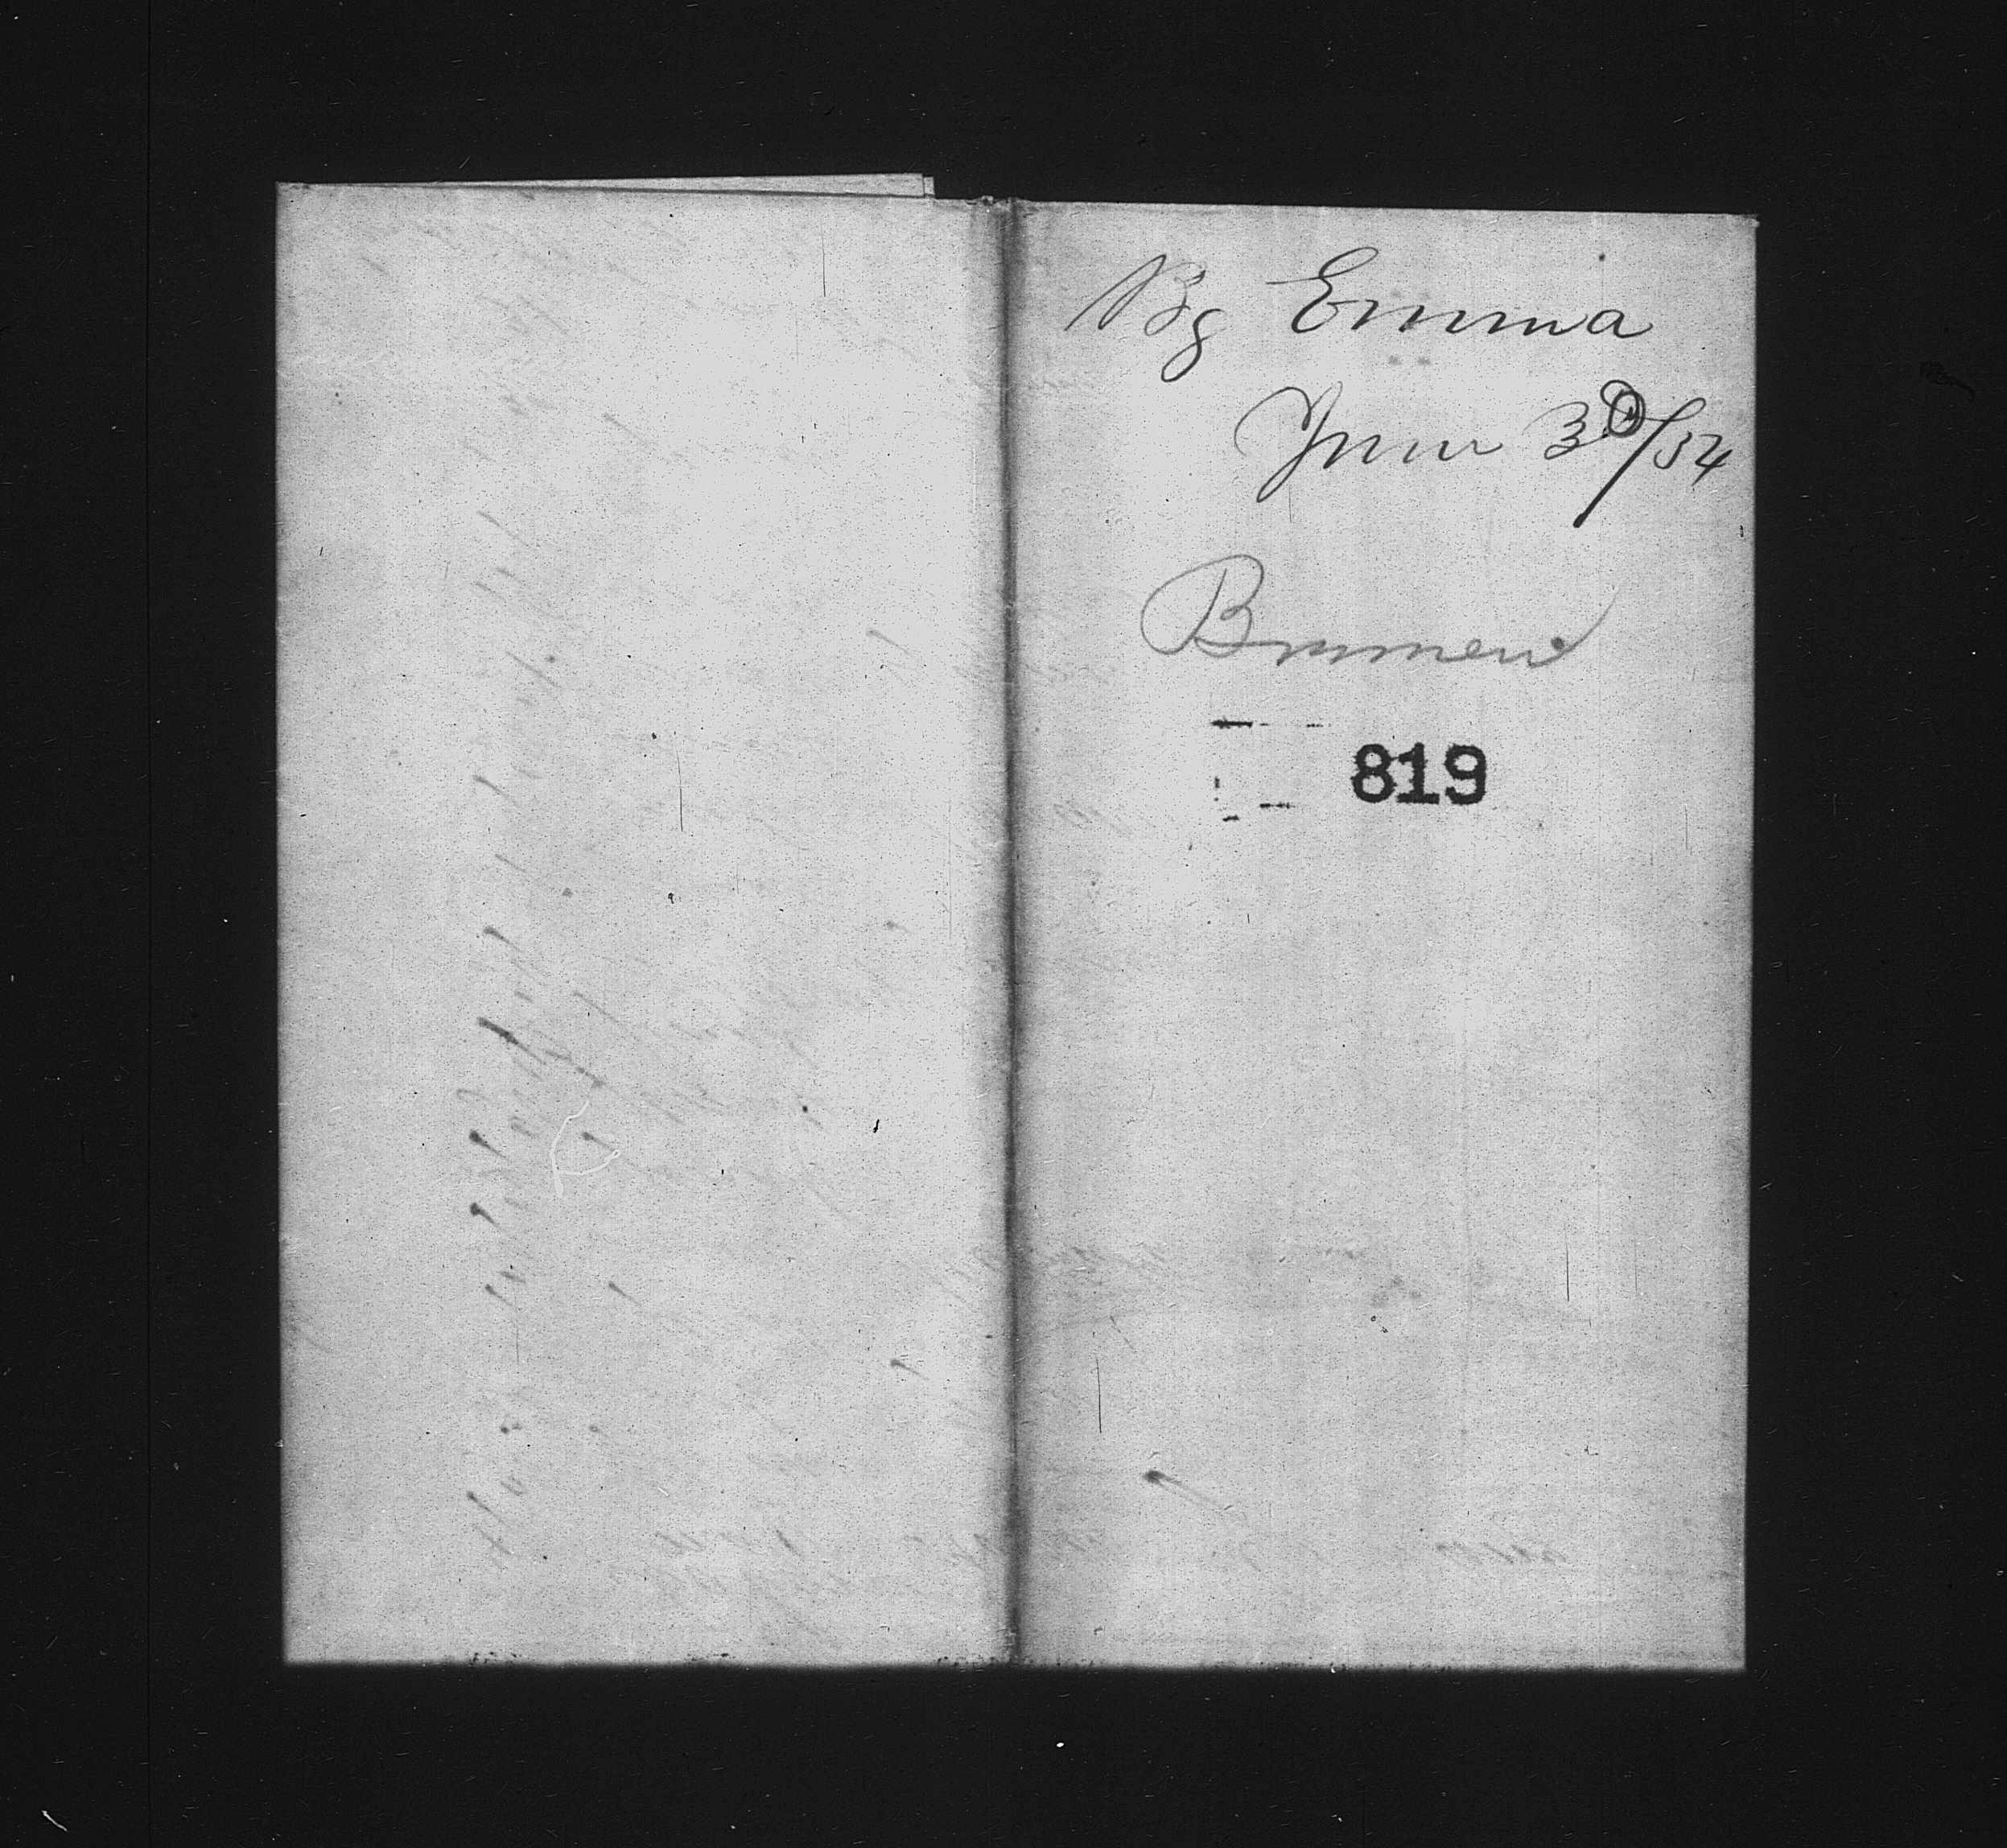 Bg Emma
June 30/54
Bremen
819